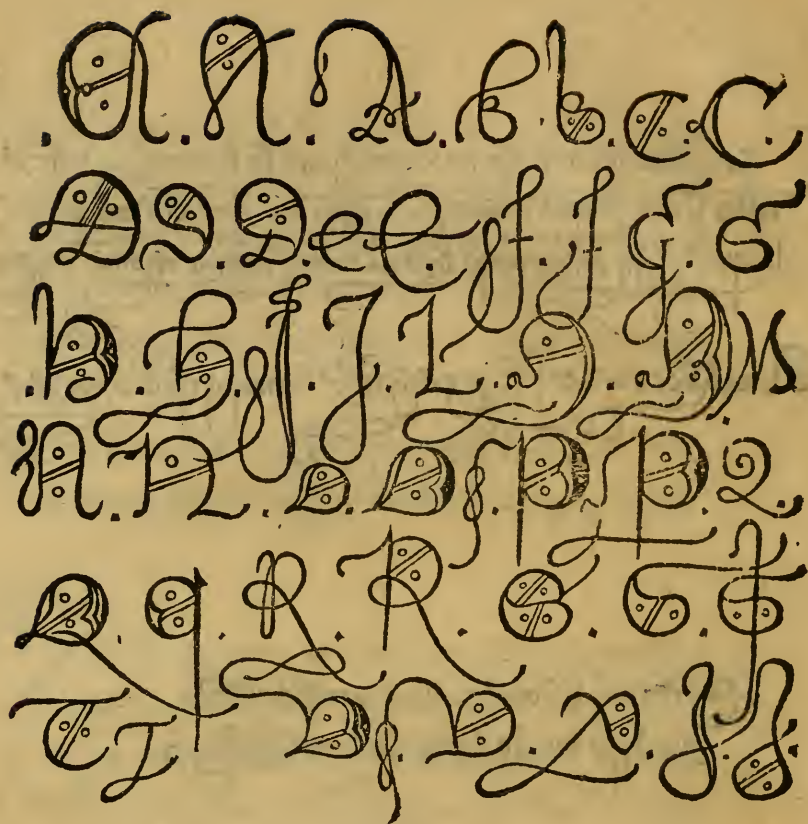 .A.A.A.B.b.C.C.
D D.D.e E.f.f.g.G
.H.H.J.J.L.M
N.N.O.O.P.P.Q.
Q.q.R.R.S.S.S
T T V.V.X.Y.Y.